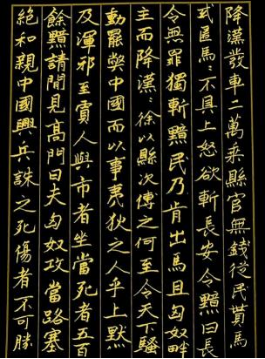 降漢發車二萬乘縣官無錢從民貰馬
或匿馬〻不具上怒欲斬長安令黯曰長
令無罪獨斬黯民乃肯出馬且匈奴畔
主而降漢〻徐以縣次傳之何至令天下騷
動罷弊中國而以事夷狄之人乎上默
及渾邪至賈人與市者坐當死者五百
餘黯請閒見高門曰夫匈奴攻當路塞
絕和親中國興兵誅之死傷者不可勝